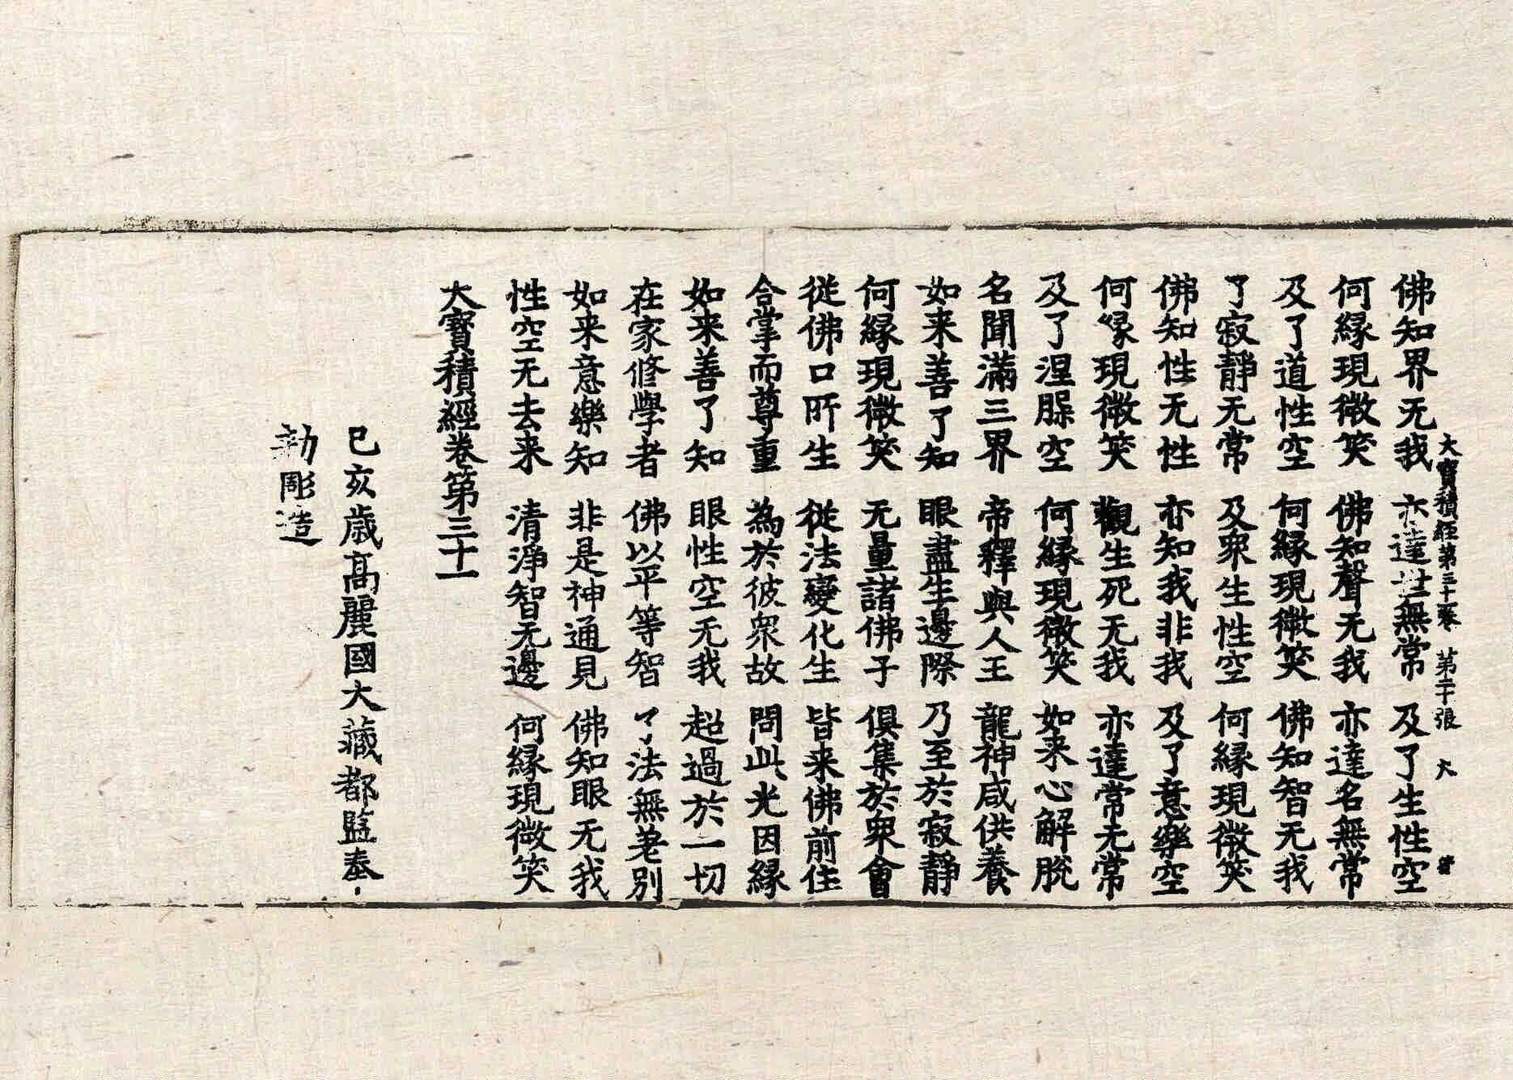 大寶積經第三十一卷 第二十張 大
佛知界无我 亦達世無常 及了生性空
何縁現微笑 佛知聲无我 亦達名無常
及了道性空 何縁現微笑 佛知智无我
了寂靜无常 及衆生性空 何縁現微笑
佛知性无性 亦知我非我 及了意樂空
何縁現微笑 觀生死无我 亦達常无常
及了涅槃空 何縁現微笑 如来心解脫
名聞滿三界 帝釋與人王 龍神咸供養
如来善了知 眼盡生邊際 乃至於寂靜
何縁現微笑 无量諸佛子 俱集於衆會
從佛口所生 從法變化生 皆来佛前住
合掌而尊重 為於彼衆故 問此光因縁
如来善了知 眼性空无我 超過於一切
在家修學者 佛以平等智 了法無差別
如来意樂知 非是神通見 佛知眼无我
性空无去来 清淨智无邊 何縁現微笑
大寶積經卷第三十一
己亥歳高麗國大藏都監奉
勅彫造